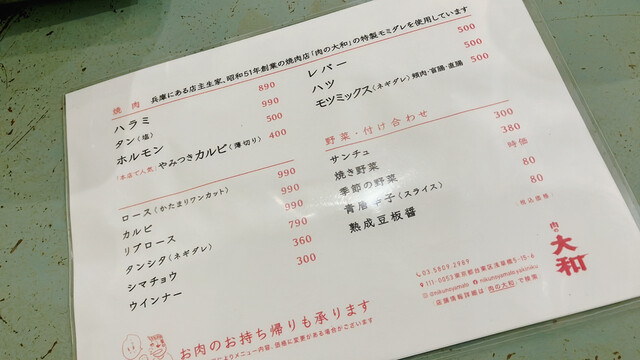 焼 肉 兵庫にある店主生家、昭和51年創業の焼肉店「肉の大和」の特製モミダレを使用しています
ハラミ 890
タン(塩) 990
ホルモン 500
「本店で人気」やみつきカルビ(薄切り) 400
ロース(かたまりワンカット) 990
カルビ 990
リブロース 990
タンシタ(ネギダレ) 790
シマチョウ 360
ウインナー 300
レバー 500
ハツ 500
モツミックス(ネギダレ) 傾肉・盲腸・直腸 500
野菜・付け合わせ
サンチュ 300
焼き野菜 380
季節の野菜 時価
青唐 子(スライス) 80
熟成豆板醤 80
税込価格
肉の大和
03.5809.2989
111-0053 東京都台東区浅草橋5-15-6
@nikunoyamato nikunoyamato.yakiniku
店舗情報詳細は 肉の大和 で検索
お肉のお持ち帰りも承ります
によりメニュー内容、価格に変更がある場合がございます